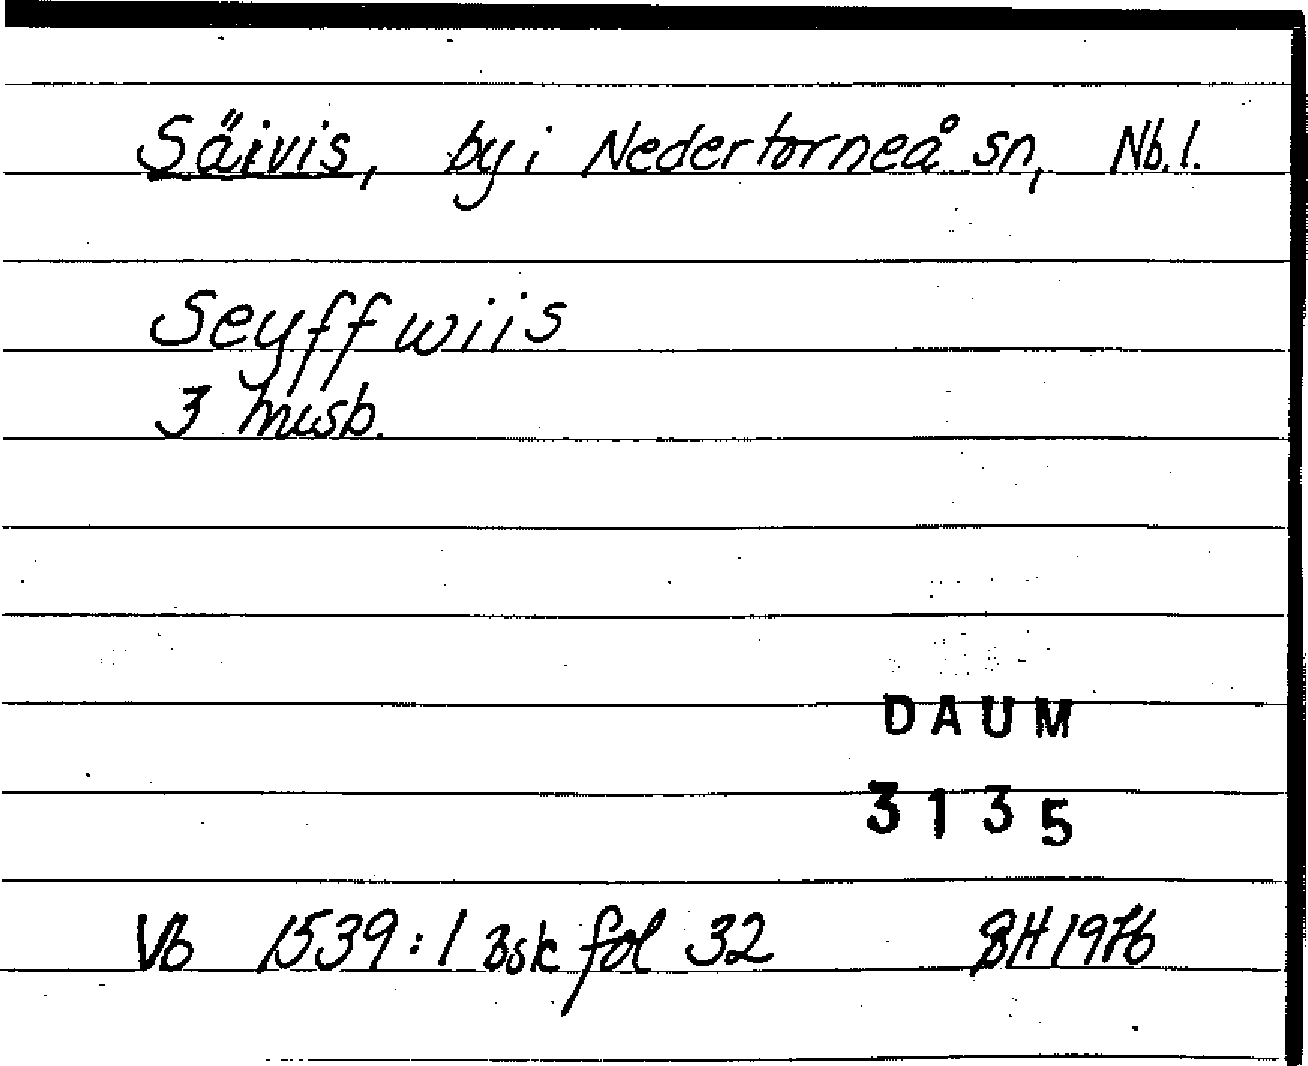 Säivis, by i Nedertorneå sn, Nb. l.
Seyffwiis
3 musb.
DAUM
3135
Vb 1539:1 Bsk fol 32 BH 1976